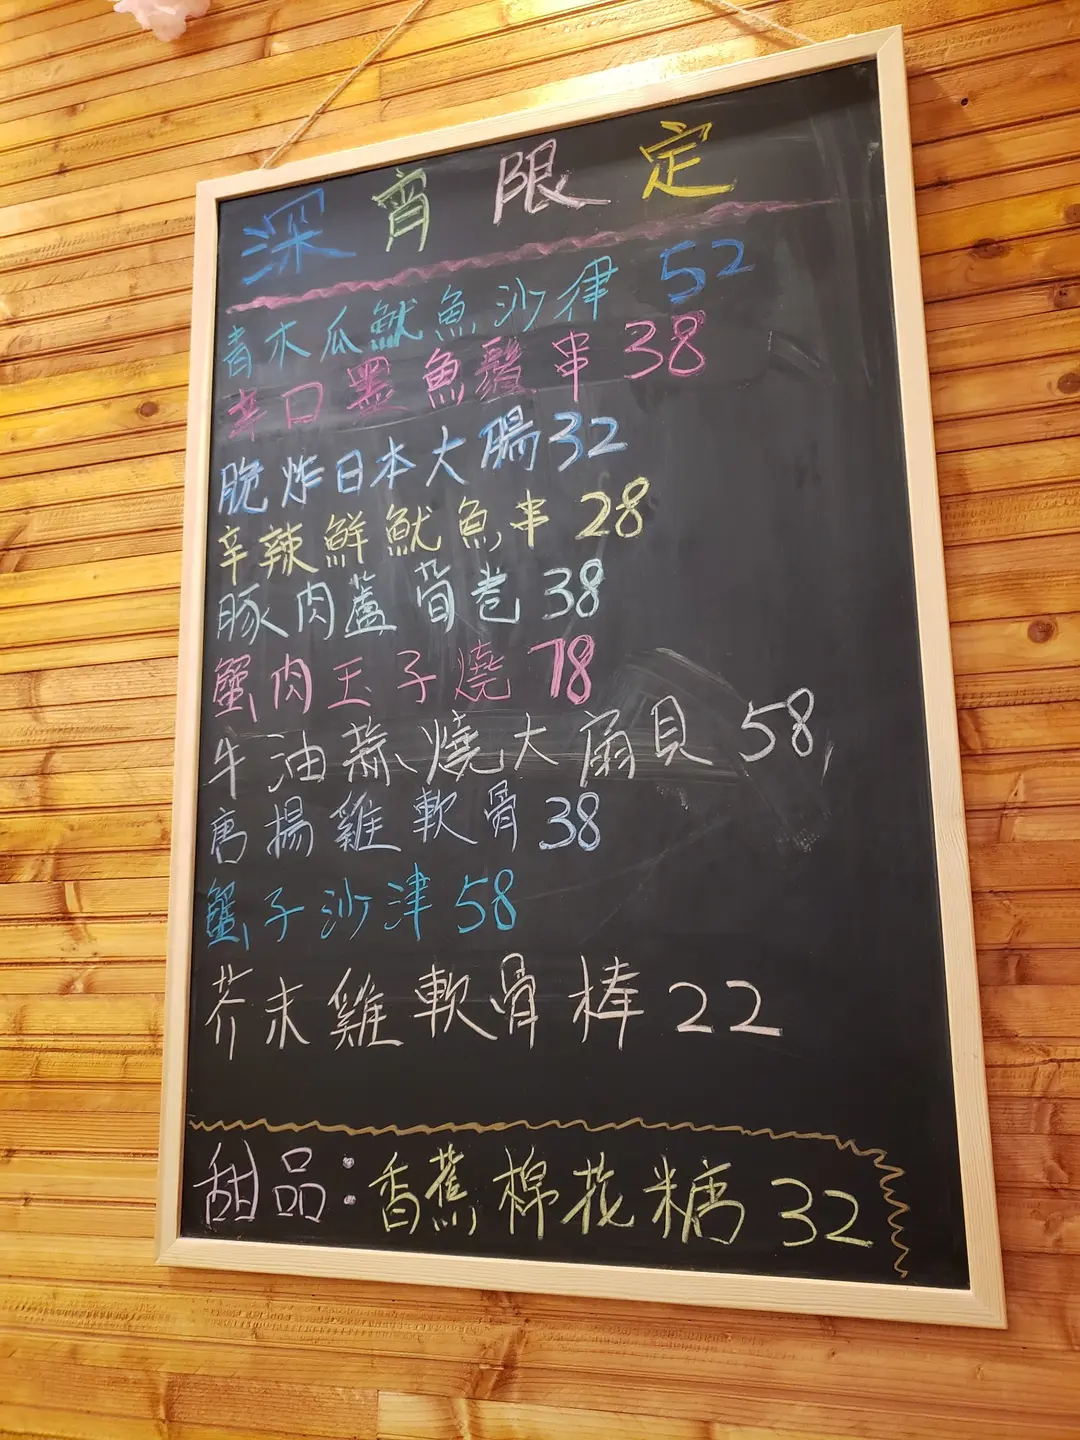 深宵限定
青木瓜魷魚沙律 52
辛口墨魚鬚串 38
脆炸日本大腸 32
辛辣鮮魷魚串 28
豚肉蘆筍卷 38
蟹肉玉子燒 78
牛油蒜燒大扇貝 58
唐揚雞軟骨 38
蟹子沙津 58
芥末雞軟骨棒 22
甜品：香蕉棉花糖 32